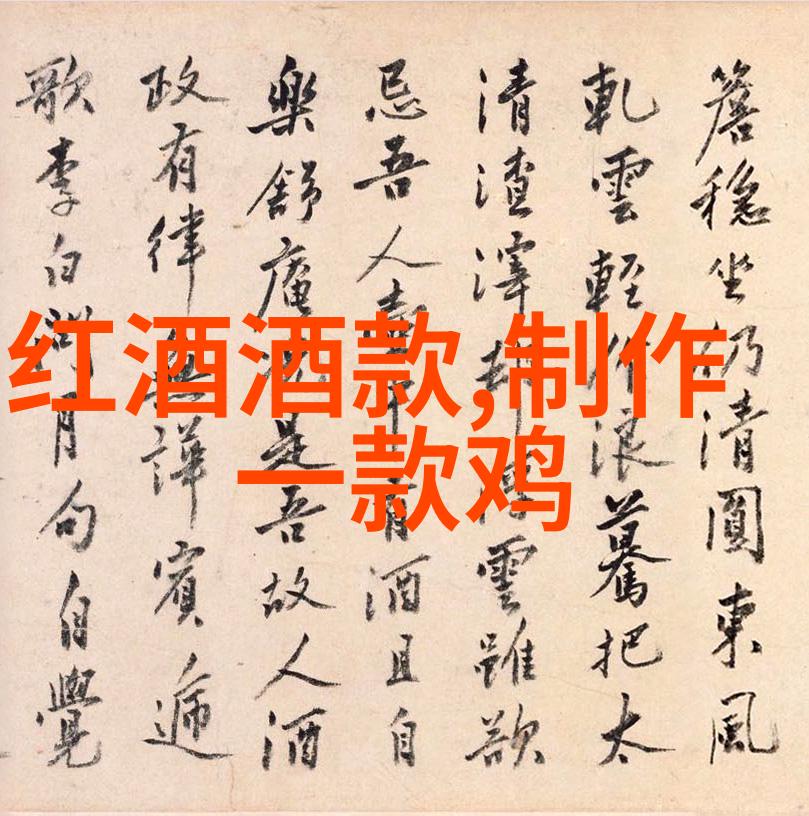 红酒酒款,制作
一款鸡
簷穩坐仍清圓東風
軋雲輕作浪驀把太
清渣滓雲雖欲
忌吾人有酒且自
樂舒庵是吾故人酒
政有律無譁賓遞
歌李白問月句自覺